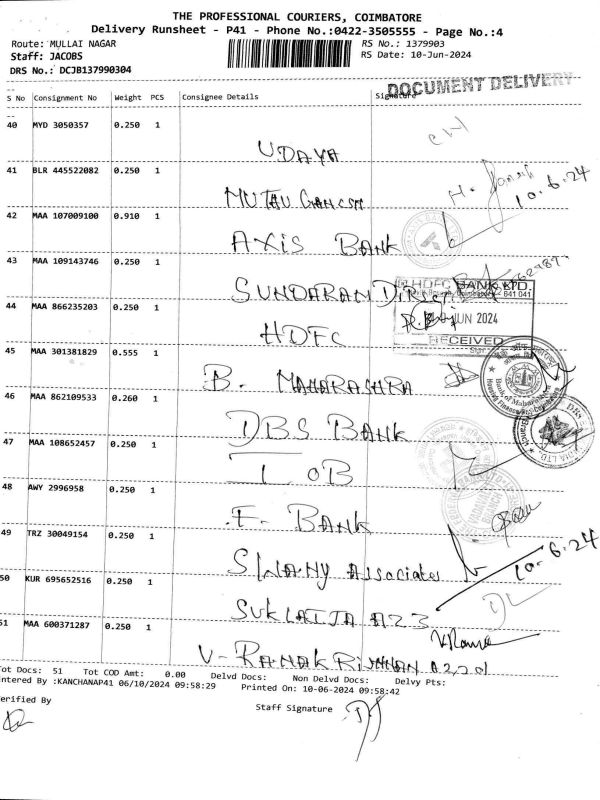 THE PROFESSIONAL COURIERS, COIMBATORE
Delivery Runsheet - P41 - Phone No.:0422-3505555 - Page No.:4
Route: MULLAI NAGAR RS No.: 1379903
Staff: JACOBS RS Date: 10-Jun-2024
DRS No.: DCJB137990304
DOCUMENT DELIVERY
S No Consignment No Weight PCS Consignee Details Signature
40 MYD 3050357 0.250 1
UDAYA
41 BLR 445522082 0.250 1
MUTHU GANESH
10.6.24
42 MAA 107009100 0.910 1
AXIS BANK
43 MAA 109143746 0.250 1
SUNDARAM DIRECT
HDFC BANK LTD.
641 041
44 MAA 866235203 0.250 1
JUN 2024
HDFC
RECEIVED
45 MAA 301381829 0.555 1
B. MAHARASHRA
Bank of Maharashtra
46 MAA 862109533 0.260 1
DBS BANK
47 MAA 108652457 0.250 1
IOB
48 AWY 2996958 0.250 1
F. BANK
49 TRZ 30049154 0.250 1
SWAMY Associates
10.6.24
50 KUR 695652516 0.250 1
SUKLATJA A23
51 MAA 600371287 0.250 1
V-RAMAKRISHNAN
Tot Docs: 51 Tot COD Amt: 0.00 Delvd Docs: Non Delvd Docs: Delvy Pts:
ntered By :KANCHANAP41 06/10/2024 09:58:29 Printed On: 10-06-2024 09:58:42
erified By Staff Signature